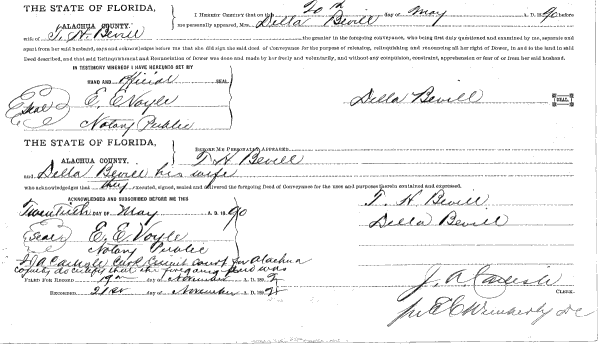 THE STATE OF FLORIDA,
ALACHUA COUNTY.
I HEREBY CERTIFY that on this 20th day of May A. D. 1890 before
me personally appeared, Mrs. Della Bevill
wife of T. H. Bevill the grantor in the foregoing conveyance, who being first duly questioned and examined by me, separate and
apart from her said husband, says and acknowledges before me that she did sign the said deed of Conveyance for the purpose of releasing, relinquishing and renouncing all her right of Dower, in and to the land in said
Deed described, and that said Relinquishment and Renunciation of Dower was done and made by her freely and voluntarily, and without any compulsion, constraint, apprehension or fear of or from her said husband.
IN TESTIMONY WHEREOF I HAVE HEREUNTO SET MY
HAND AND official SEAL
Seal E. E. Voyle
Notary Public
Della Bevill SEAL
THE STATE OF FLORIDA,
ALACHUA COUNTY.
BEFORE ME PERSONALLY APPEARED T H Bevill
and Della Bevill his wife
who acknowledges that they executed, signed, sealed and delivered the foregoing Deed of Conveyance for the uses and purposes therein contained and expressed.
ACKNOWLEDGED AND SUBSCRIBED BEFORE ME THIS
Twentieth DAY OF May A. D. 1890
Seal E. E. Voyle
Notary Public
T. H. Bevill
Della Bevill
I J A Carlisle Clerk Circuit Court for Alachua
County do certify that the foregoing deed was
FILED FOR RECORD 19th day of November A. D. 1892
RECORDED 21st day of November A. D. 1892
J. A. Carlisle
CLERK.
per E C Wimberly DC